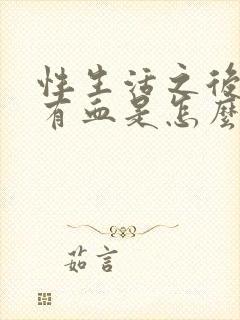 性生活之後
有血是怎麼
茹言